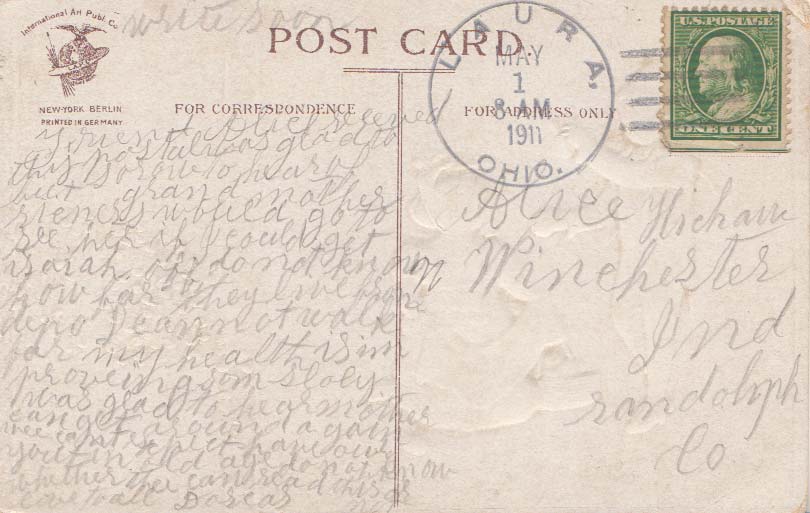 International Art Publ. Co.
NEW-YORK BERLIN
PRINTED IN GERMANY
write soon
POST CARD.
FOR CORRESPONDENCE
FOR ADDRESS ONLY
LAURA,
MAY
1
8 AM
1911
OHIO.
U.S. POSTAGE
ONE CENT
Alice received
this was glad to
hear
but grand mother
would go to
see her if I could get
do not know
how far they live from
depo I can not walk
far my health is im
proveing som sloly
was glad to hear mother
can get around again
wee cant expect have our
in old age do not know
whether thee can read this or
love to all Dorcas
Alice
Winchester
Ind
randolph
Co